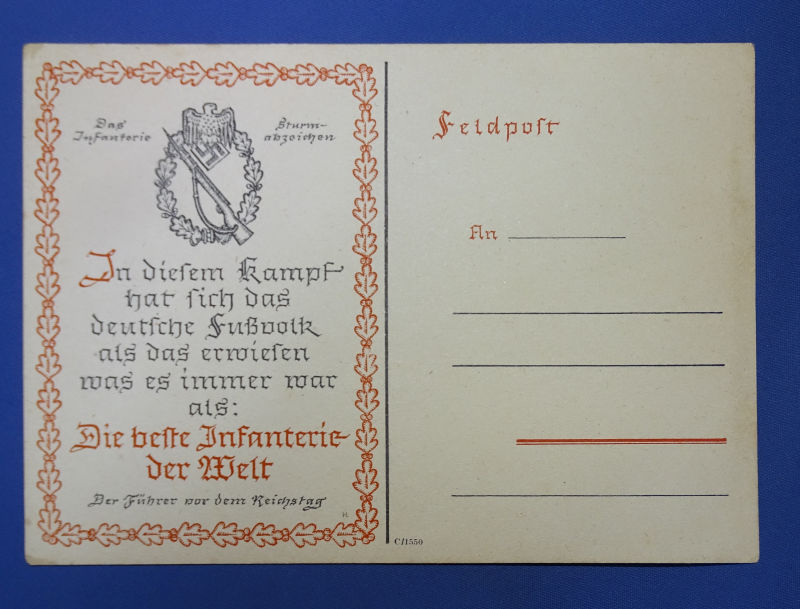 Das
Infanterie
Sturm-
abzeichen
In diesem Kampf
hat sich das
deutsche Fußvolk
als das erwiesen
was es immer war
als:
Die beste Infanterie
der Welt
Der Führer vor dem Reichstag
H.
Feldpost
An
C/1550